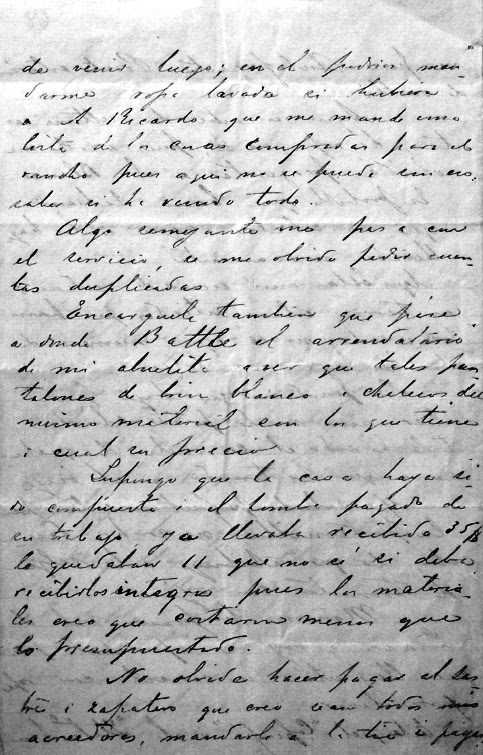 de venir luego; en el podria man-
darme ropa lavada si hubiera
a A Ricardo que me mande una
lista de las cosas compradas para el
rancho pues aqui no se puede sin eso,
saber si ha venido todo.
Algo semejante me pasa con
el servicio, a me olvido pedir cuen-
tas duplicadas
Encarguele tambien que pase
a donde Battle el arrendatario
de mi abuelita a ver que tales pan-
talones de brin blanco i chalecos del
mismo material son los que tiene
i cual su precio
Supongo que la casa haya si-
do compuesta i el hombre pagado de
su trabajo ya llevaba recibido 35
le quedaban 11 que no sé si deba
recibirlos integros pues los materia-
les creo que costaron menos que
lo presupuestado.
No olvide hacer pagar al sas-
tre i zapatero que creo son todos mis
acreedores, mandarle a la tia i